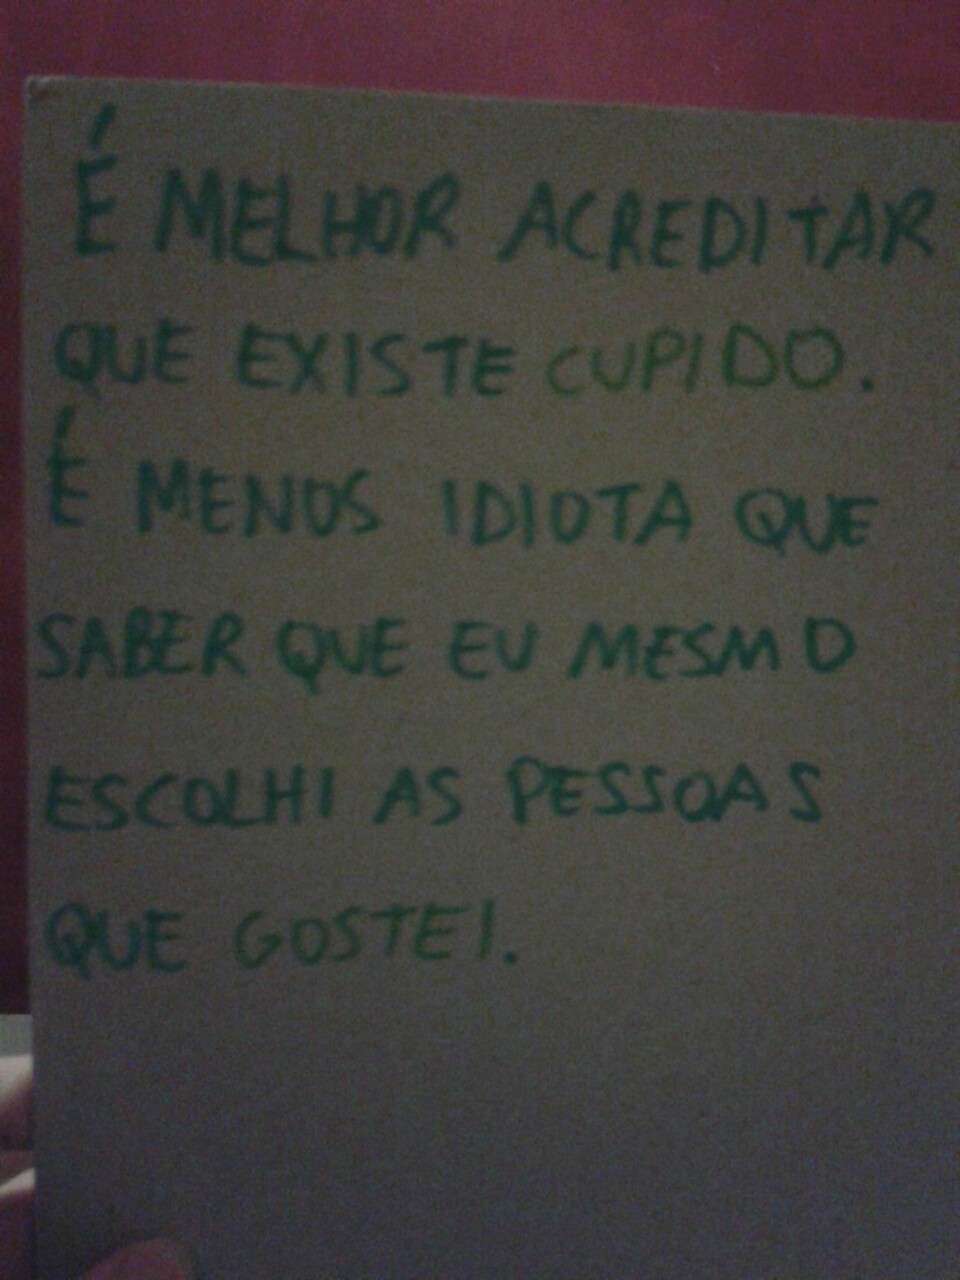 É MELHOR ACREDITAR
QUE EXISTE CUPIDO.
É MENOS IDIOTA QUE
SABER QUE EU MESMO
ESCOLHI AS PESSOAS
QUE GOSTEI.